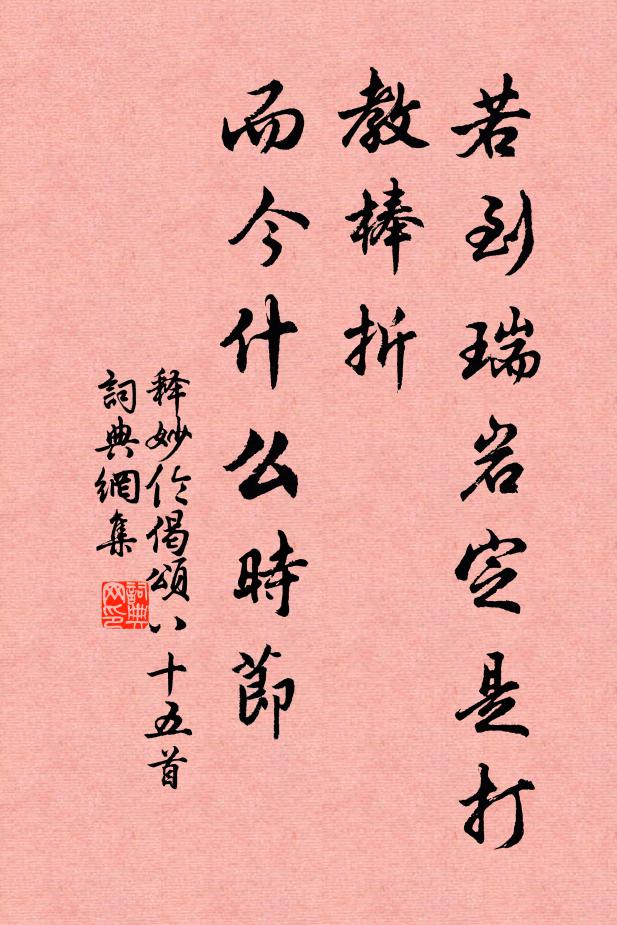 若到瑞岩定是打
教棒折
而今什么時節
释妙伦偈頌八十五首
詞典網集
詞典网印